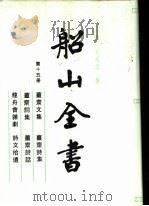 船山全書
第十五册
薑齋文集　薑齋詩集
薑齋詞集　薑齋詩話
龍舟會雜劇　詩文拾遺